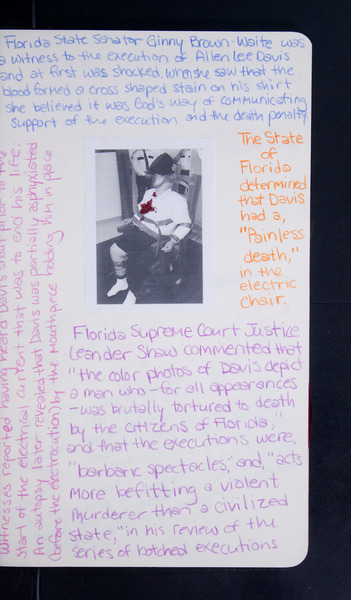 Florida State Senator Ginny Brown-Waite was
a witness to the execution of Allen Lee Davis
and at first was shocked, when she saw that the
blood formed a cross shaped stain on his shirt
she believed it was God's way of communicating
support of the execution and the death penalty.
The State
of
Florida
determined
that Davis
had a,
"Painless
death,"
in the
electric
chair.
Witnesses reported having heard Davis shout prior to the
start of the electrical current that was to end his life.
An autopsy later revealed that Davis was partially asphyxiated
(before the electrocution) by the mouthpiece holding him in place
Florida Supreme Court Justice
Leander Shaw commented that
"the color photos of Davis depict
a man who-for all appearances
-was brutally tortured to death
by the citizens of Florida,"
and that the executions were,
"barbaric spectacles," and, "acts
more befitting a violent
murderer than a civilized
state," in his review of the
series of botched executions